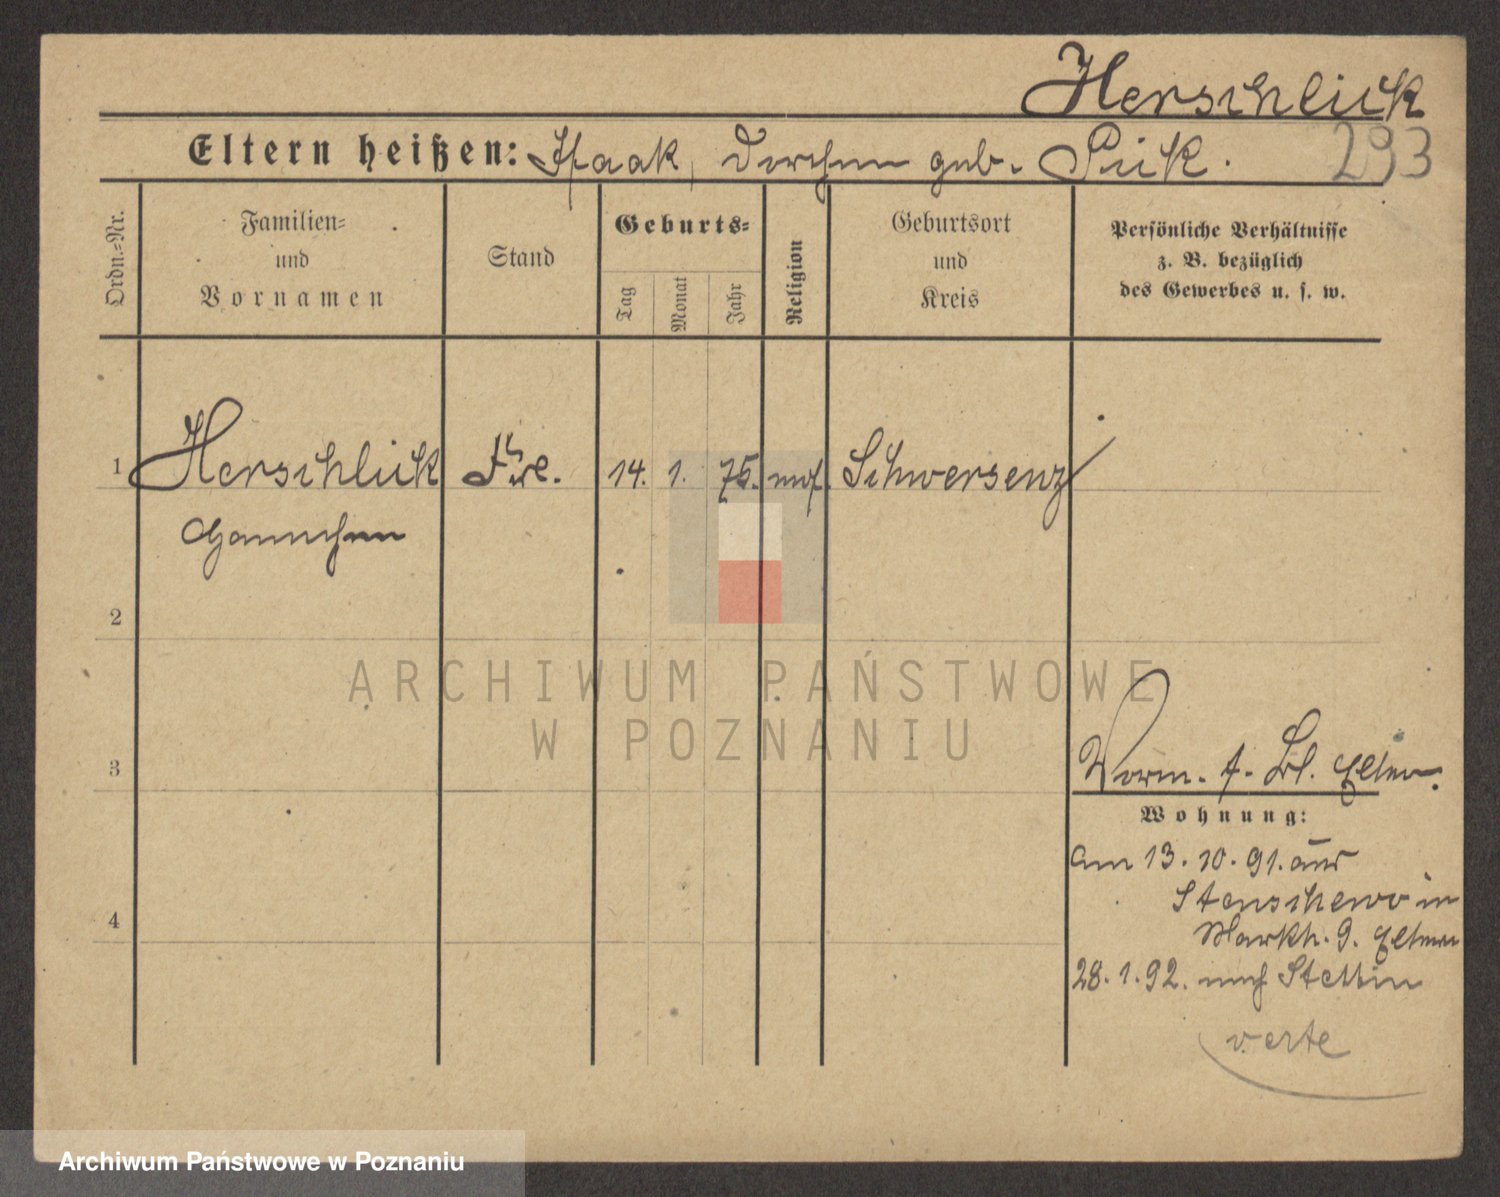 Herschlick
Eltern heißen: Isaak, Dorchen geb. Pick.
293
Ordn.=Nr.
Familien=
und
Vornamen
Stand
Geburts=
Tag
Monat
Jahr
Religion
Geburtsort
und
Kreis
Persönliche Verhältnisse
z. B. bezüglich
des Gewerbes u. s. w.
1 Herschlick Frl. 14. 1. 75. mos. Schwersenz
Hannchen
2
3
4
Vorm. f. Bl. Eltern.
Wohnung:
am 13.10.91. aus
Stenschewo in
Markth. 9. Eltern
28.1.92. nach Stettin
verte
ARCHIWUM PAŃSTWOWE
W POZNANIU
Archiwum Państwowe w Poznaniu